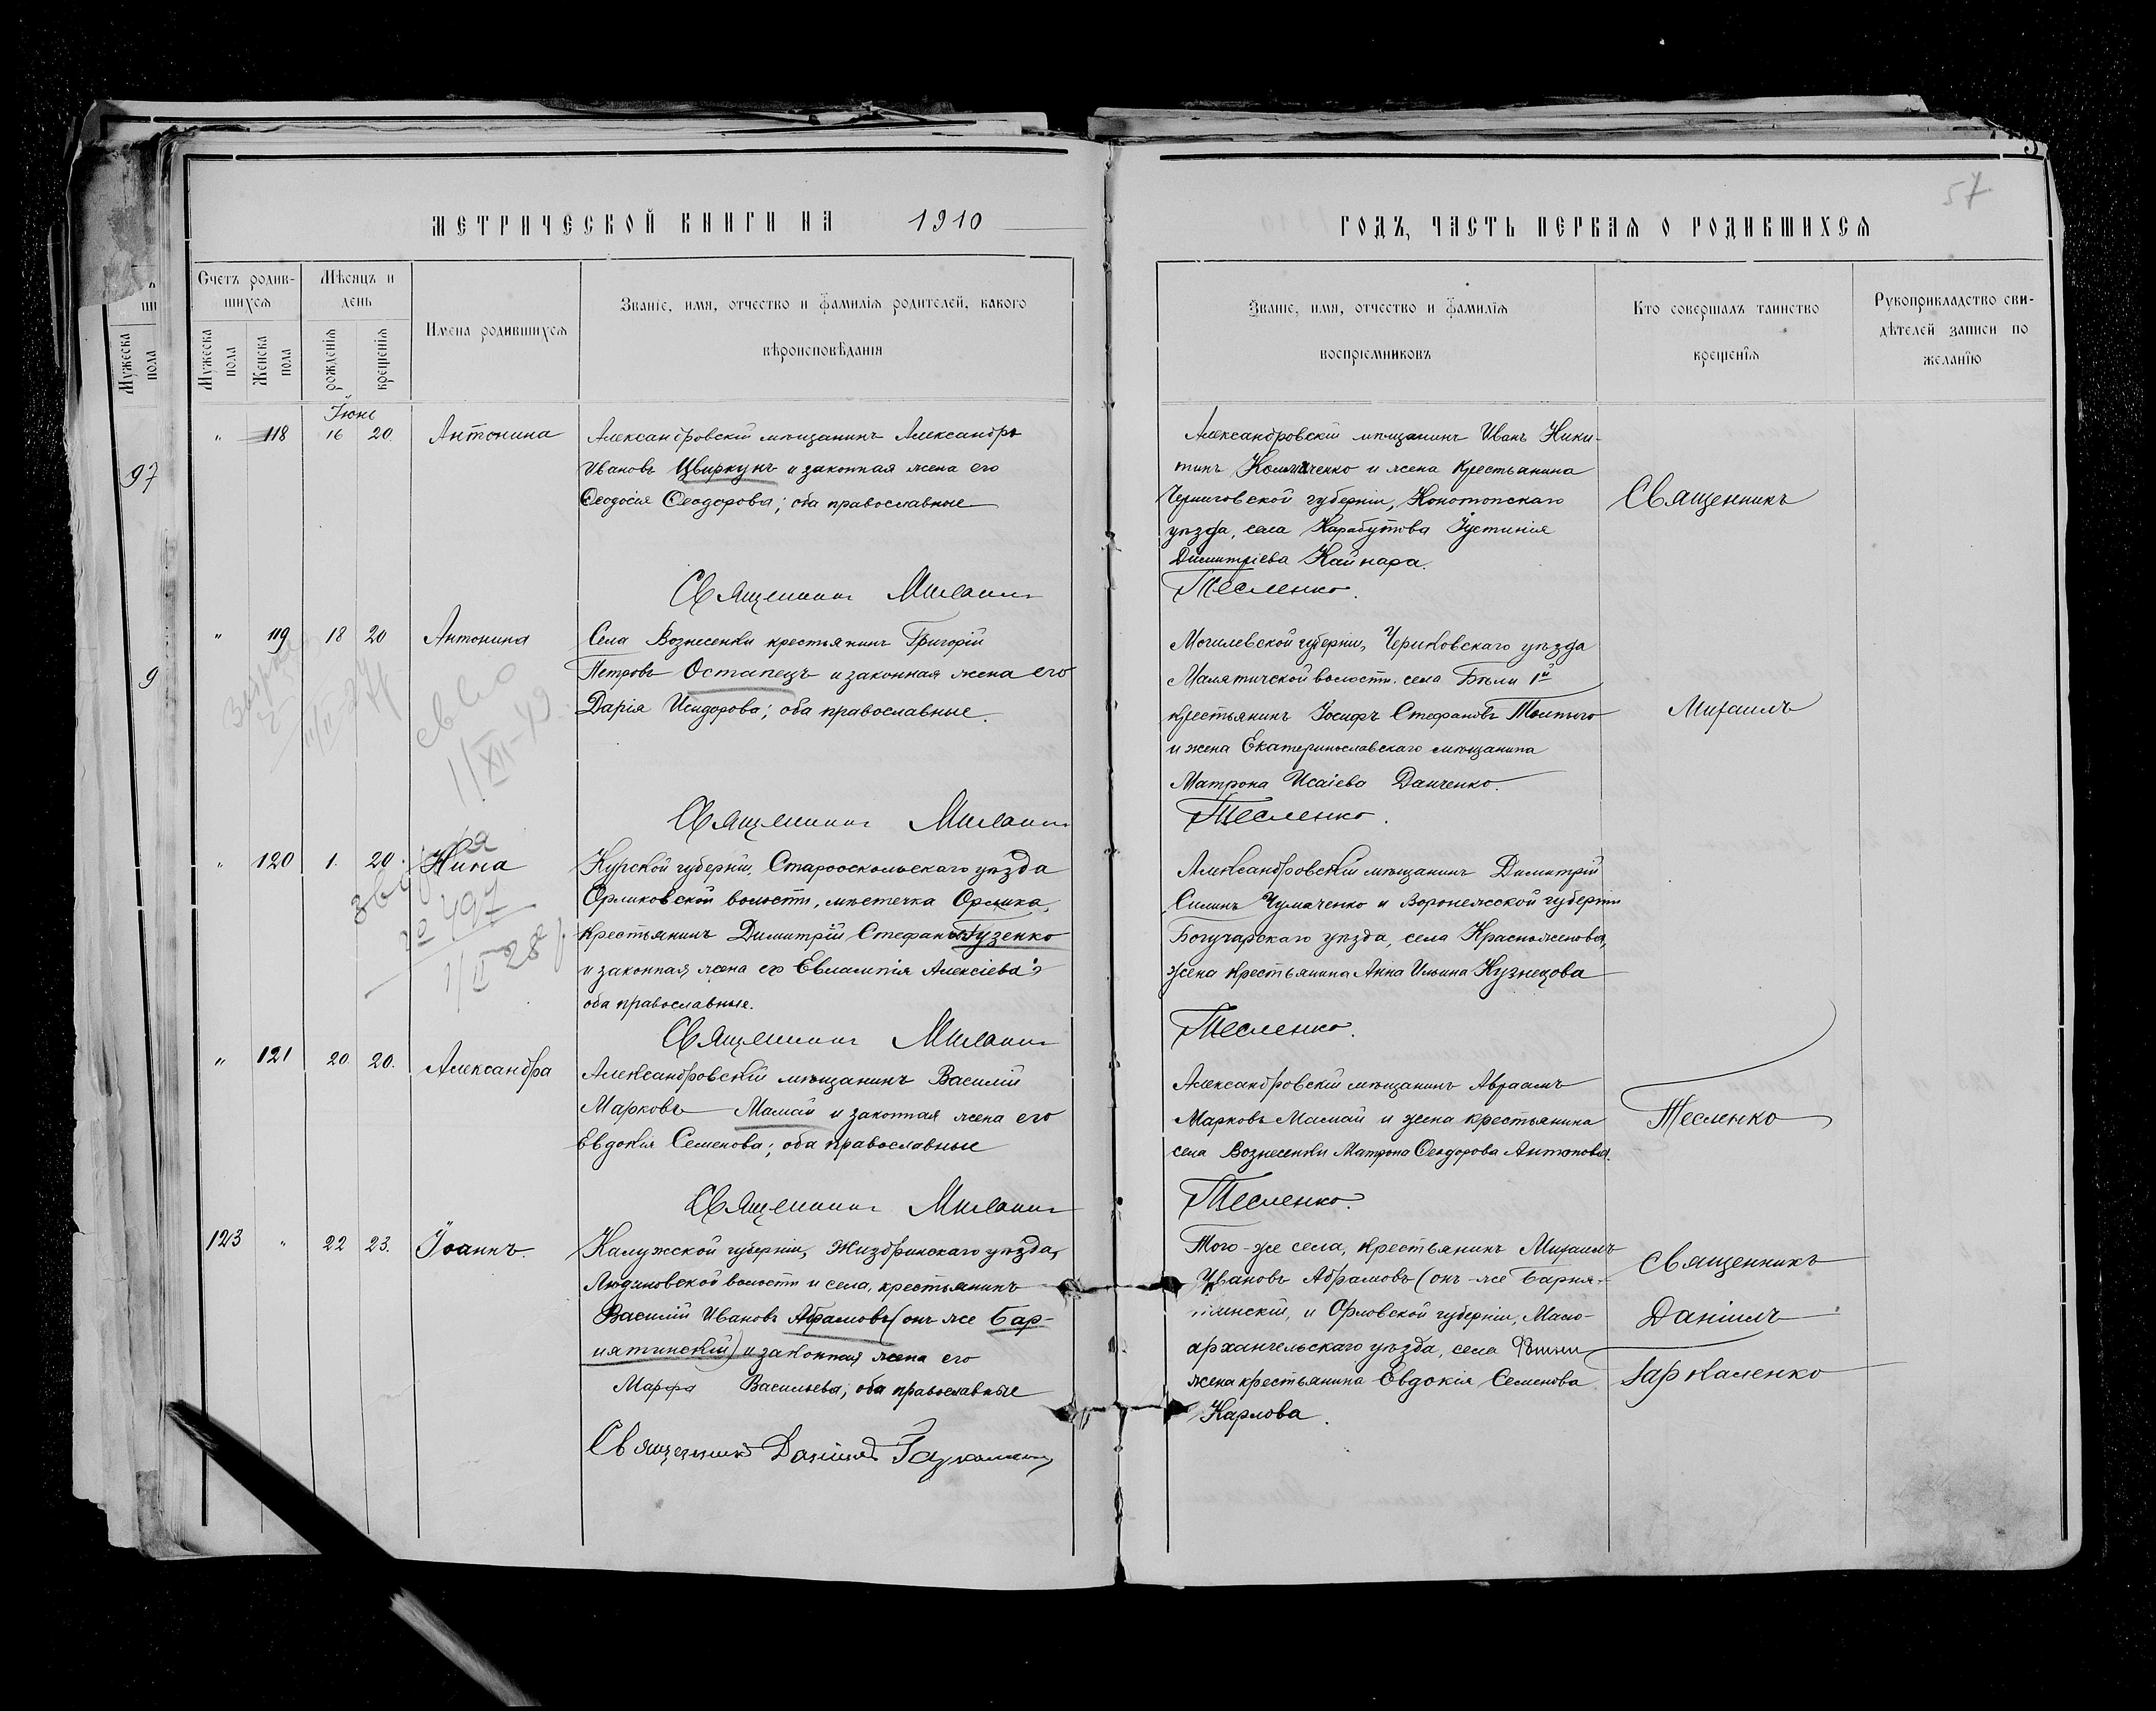 57
МЕТРИЧЕСКОЙ КНИГИ НА 1910
Счетъ родив-
шихся
Мѣсяцъ и
день
Имена родившихся
Званіе, имя, отчество и фамилія родителей, какого
вѣроисповѣданія
Мужеска
пола
Женска
пола
рожденія
крещенія
Мужеска
пола
97
9
Іюнь
" 118 16 20. Антонина
Александровскій мѣщанинъ Александръ
Ивановъ Цвиркунъ и законная жена его
Ѳеодосія Ѳеодорова; оба православные
Священникъ Михаилъ
" 119 18 20 Антонина
Села Вознесенки крестьянинъ Григорій
Петровъ Остапецъ и законная жена его
Дарія Исидорова; оба православные.
Священникъ Михаилъ
" 120 1. 20. Нина
№ 497
Курской губерніи, Старооскольскаго уѣзда
Орликовской волости, мѣстечка Орлика,
крестьянинъ Димитрій Стефановъ Гузенко
и законная жена его Евлампія Алексіева;
оба православные.
Священникъ Михаилъ
" 121 20 20. Александра
Александровскій мѣщанинъ Василій
Марковъ Мамай и законная жена его
Евдокія Семенова; оба православные
Священникъ Михаилъ
123 " 22 23. Іоаннъ.
Калужской губерніи, Жиздринскаго уѣзда,
Людиновской волости и села, крестьянинъ
Василій Ивановъ Абрамовъ (онъ же Бар-
нятинскій) и законная жена его
Марфа Васильева; оба православные
Священникъ Даніилъ Гаркаленко
ГОДЪ, ЧАСТЬ ПЕРВАЯ О РОДИВШИХСЯ
Званіе, имя, отчество и фамилія
воспріемниковъ
Кто совершалъ таинство
крещенія
Рукоприкладство сви-
дѣтелей записи по
желанію
Александровскій мѣщанинъ Иванъ Ники-
тинъ и жена крестьянина
Черниговской губерніи, Конотопскаго
уѣзда, села Карабутова Іустинія
Димитріева Кайнара.
Тесленко.
Могилевской губерніи, Чериковскаго уѣзда
Малятичской волости. села 1й
крестьянинъ Іосифъ Стефановъ
и жена Екатеринославскаго мѣщанина
Матрона Исаіева Данченко.
Тесленко.
Александровскій мѣщанинъ Димитрій
Силинъ Чумаченко и Воронежской губерніи
Богучарскаго уѣзда, села Красноженова,
жена крестьянина Анна Ильина Кузнецова
Тесленко.
Александровскій мѣщанинъ Авраамъ
Марковъ Мамай и жена крестьянина
села Вознесенки Матрона Ѳеодорова Антонова.
Тесленко.
Того-же села, крестьянинъ Михаилъ
Ивановъ Абрамовъ (онъ-же Барня-
тинскій, и Орловской губерніи, Мало-
архангельскаго уѣзда, села
жена крестьянина Евдокія Семенова
Карлова.
Священникъ
Михаилъ
Тесленко
Священникъ
Даніилъ
Гаркаленко